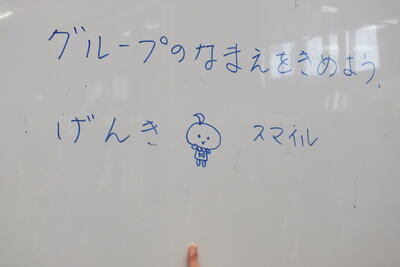 グループのなまえをきめよう
げんき スマイル